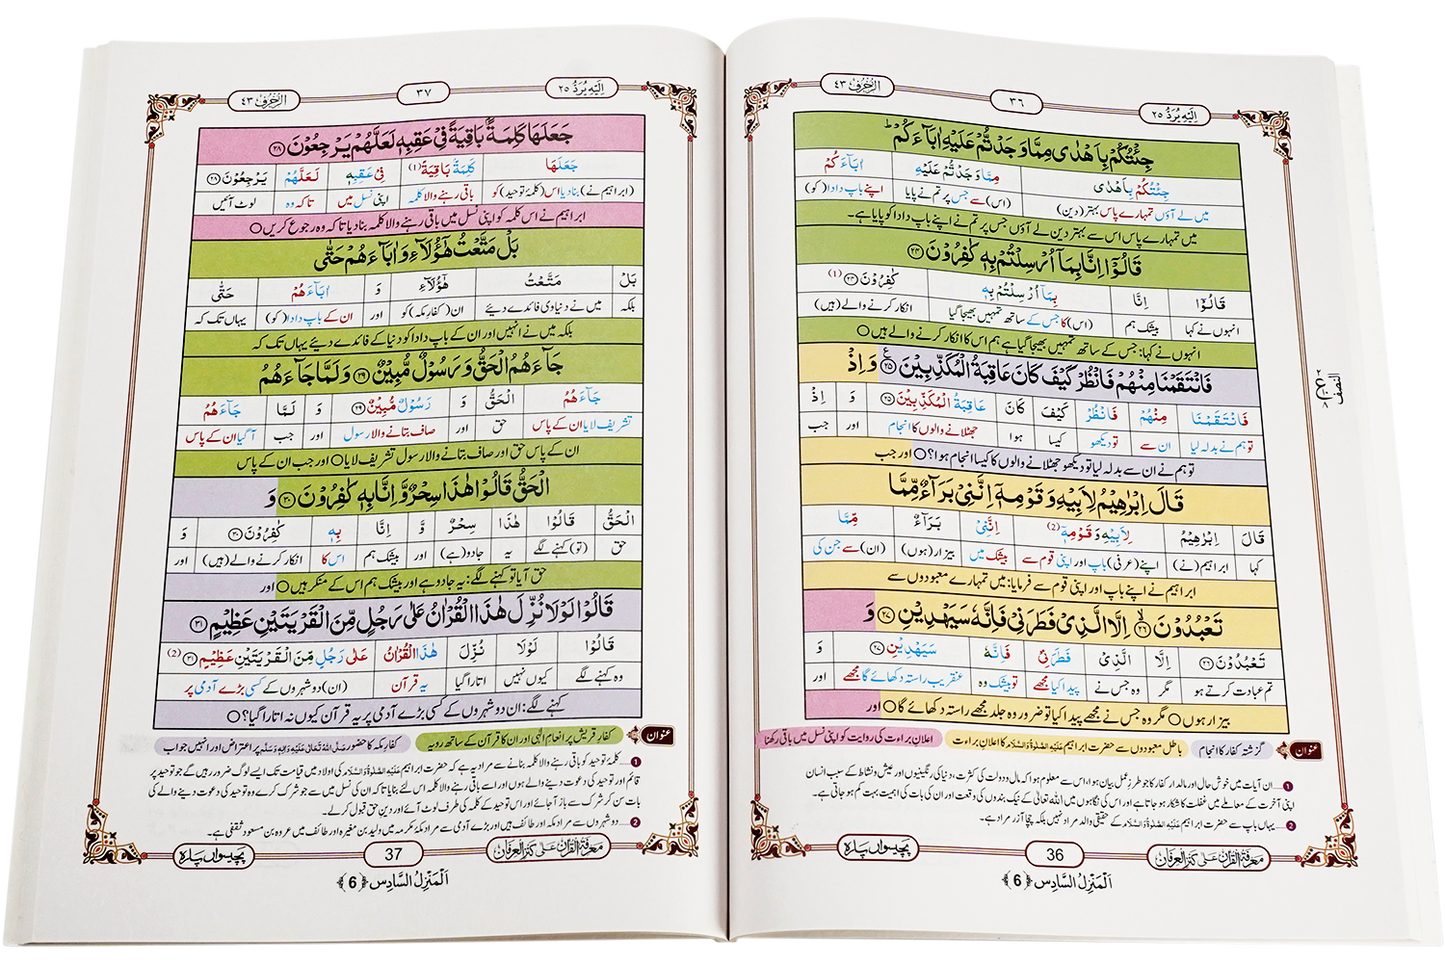 اِلَیْهِ یُرَدُّ ۲۵
۳۶
اَلزُّخْرُف ۴۳
جِئْتُكُمْ بِاَهْدٰى مِمَّا وَجَدْتُّمْ عَلَیْهِ اٰبَآءَكُمْؕ
جِئْتُكُمْ بِاَهْدٰى مِمَّا وَجَدْتُّمْ عَلَیْهِ اٰبَآءَكُمْ
میں لے آؤں تمہارے پاس بہتر (دین) (اس) سے جس پر تم نے پایا اپنے باپ دادا (کو)
میں تمہارے پاس اس سے بہتر دین لے آؤں جس پر تم نے اپنے باپ دادا کو پایا ہے۔
قَالُوْۤا اِنَّا بِمَاۤ اُرْسِلْتُمْ بِهٖ كٰفِرُوْنَ ۲۴
قَالُوْۤا اِنَّا بِمَاۤ اُرْسِلْتُمْ بِهٖ كٰفِرُوْنَ ۲۴ (1)
انہوں نے کہا بیشک ہم (اس) کا جس کے ساتھ تمہیں بھیجا گیا انکار کرنے والے (ہیں)
انہوں نے کہا: جس کے ساتھ تمہیں بھیجا گیا ہے ہم اس کا انکار کرنے والے ہیں○
فَانْتَقَمْنَا مِنْهُمْ فَانْظُرْ كَیْفَ كَانَ عَاقِبَةُ الْمُكَذِّبِیْنَ ۲۵ ع وَ اِذْ
فَانْتَقَمْنَا مِنْهُمْ فَانْظُرْ كَیْفَ كَانَ عَاقِبَةُ الْمُكَذِّبِیْنَ ۲۵ وَ اِذْ
تو ہم نے بدلہ لیا ان سے تو دیکھو کیسا ہوا جھٹلانے والوں کا انجام اور جب
تو ہم نے ان سے بدلہ لیا تو دیکھو جھٹلانے والوں کا کیسا انجام ہوا؟○ اور جب
قَالَ اِبْرٰهِیْمُ لِاَبِیْهِ وَ قَوْمِهٖۤ اِنَّنِیْ بَرَآءٌ مِّمَّا
قَالَ اِبْرٰهِیْمُ لِاَبِیْهِ وَ قَوْمِهٖۤ (2) اِنَّنِیْ بَرَآءٌ مِّمَّا
کہا ابراہیم (نے) اپنے (عرفی) باپ اور اپنی قوم سے بیشک میں بیزار (ہوں) (ان) سے جن کی
ابراہیم نے اپنے باپ اور اپنی قوم سے فرمایا: میں تمہارے معبودوں سے
تَعْبُدُوْنَ ۲۶ اِلَّا الَّذِیْ فَطَرَنِیْ فَاِنَّهٗ سَیَهْدِیْنِ ۲۷ وَ
تَعْبُدُوْنَ ۲۶ اِلَّا الَّذِیْ فَطَرَنِیْ فَاِنَّهٗ سَیَهْدِیْنِ ۲۷ وَ
تم عبادت کرتے ہو مگر وہ جس نے پیدا کیا مجھے تو بیشک وہ عنقریب راستہ دکھائے گا مجھے اور
بیزار ہوں○ مگر وہ جس نے مجھے پیدا کیا تو ضرور وہ جلد مجھے راستہ دکھائے گا○ اور
عنوان گزشتہ کفار کا انجام باطل معبودوں سے حضرت ابراہیم عَلَیْهِ الصَّلٰوةُ وَالسَّلَام کا اعلانِ براءت اعلانِ براءت کی روایت کو اپنی نسل میں باقی رکھنا
1- ان آیات میں خوش حال اور مالدار کفار کا جو طرزِ عمل بیان ہوا، اس سے معلوم ہوا کہ مال و دولت کی کثرت، دنیا کی رنگینیوں اور عیش و نشاط کے سبب انسان
اپنی آخرت کے معاملے میں غفلت کا شکار ہو جاتا ہے اور اس کی نگاہوں میں اللہ تعالیٰ کے نیک بندوں کی وقعت اور ان کی بات کی اہمیت بہت کم ہو جاتی ہے۔
2- یہاں باپ سے حضرت ابراہیم عَلَیْهِ الصَّلٰوةُ وَالسَّلَام کے حقیقی والد مراد نہیں بلکہ چچا آزر مراد ہے۔
معرفۃ القرآن علیٰ کنز العرفان
36
پچیسواں پارہ
اَلْمَنْزِلُ السَّادِس ﴿6﴾
النصف
اِلَیْهِ یُرَدُّ ۲۵
۳۷
اَلزُّخْرُف ۴۳
جَعَلَهَا كَلِمَةًۢ بَاقِیَةً فِیْ عَقِبِهٖ لَعَلَّهُمْ یَرْجِعُوْنَ ۲۸
جَعَلَهَا كَلِمَةًۢ بَاقِیَةً (1) فِیْ عَقِبِهٖ لَعَلَّهُمْ یَرْجِعُوْنَ ۲۸
(ابراہیم نے) بنا دیا اس (کلمۂ توحید) کو باقی رہنے والا کلمہ اپنی نسل میں تا کہ وہ لوٹ آئیں
ابراہیم نے اس کلمہ کو اپنی نسل میں باقی رہنے والا کلمہ بنا دیا تا کہ وہ رجوع کریں○
بَلْ مَتَّعْتُ هٰۤؤُلَآءِ وَ اٰبَآءَهُمْ حَتّٰى
بَلْ مَتَّعْتُ هٰۤؤُلَآءِ وَ اٰبَآءَهُمْ حَتّٰى
بلکہ میں نے دنیاوی فائدے دیئے ان (کفارِ مکہ) کو اور ان کے باپ دادا (کو) یہاں تک کہ
بلکہ میں نے انہیں اور ان کے باپ دادا کو دنیا کے فائدے دیئے یہاں تک کہ
جَآءَهُمُ الْحَقُّ وَ رَسُوْلٌ مُّبِیْنٌ ۲۹ وَ لَمَّا جَآءَهُمُ
جَآءَهُمُ الْحَقُّ وَ رَسُوْلٌ مُّبِیْنٌ ۲۹ وَ لَمَّا جَآءَهُمُ
تشریف لایا ان کے پاس حق اور صاف بتانے والا رسول اور جب آ گیا ان کے پاس
ان کے پاس حق اور صاف بتانے والا رسول تشریف لایا○ اور جب ان کے پاس
الْحَقُّ قَالُوْا هٰذَا سِحْرٌ وَّ اِنَّا بِهٖ كٰفِرُوْنَ ۳۰ وَ
الْحَقُّ قَالُوْا هٰذَا سِحْرٌ وَّ اِنَّا بِهٖ كٰفِرُوْنَ ۳۰ وَ
حق (تو) کہنے لگے یہ جادو (ہے) اور بیشک ہم اس کا انکار کرنے والے (ہیں) اور
حق آیا تو کہنے لگے: یہ جادو ہے اور بیشک ہم اس کے منکر ہیں○ اور
قَالُوْا لَوْ لَا نُزِّلَ هٰذَا الْقُرْاٰنُ عَلٰى رَجُلٍ مِّنَ الْقَرْیَتَیْنِ عَظِیْمٍ ۳۱
قَالُوْا لَوْلَا نُزِّلَ هٰذَا الْقُرْاٰنُ عَلٰى رَجُلٍ مِّنَ الْقَرْیَتَیْنِ عَظِیْمٍ ۳۱ (2)
وہ کہنے لگے کیوں نہیں اتارا گیا یہ قرآن (ان) دو شہروں کے کسی بڑے آدمی پر
کہنے لگے: ان دو شہروں کے کسی بڑے آدمی پر یہ قرآن کیوں نہ اتارا گیا؟○
عنوان کفارِ قریش پر انعامِ الٰہی اور ان کا قرآن کے ساتھ رویہ کفارِ مکہ کا حضور صَلَّى اللهُ تَعَالٰى عَلَیْهِ وَاٰلِهٖ وَسَلَّم پر اعتراض اور انہیں جواب
1- کلمۂ توحید کو باقی رہنے والا کلمہ بنانے سے مراد یہ ہے کہ حضرت ابراہیم عَلَیْهِ الصَّلٰوةُ وَالسَّلَام کی اولاد میں قیامت تک ایسے لوگ ضرور رہیں گے جو توحید پر
قائم اور توحید کی دعوت دینے والے ہوں اور اسے باقی رہنے والا کلمہ اس لئے بنایا تا کہ ان کی نسل میں سے جو شرک کرے وہ توحید کی دعوت دینے والے کی
بات سن کر شرک سے باز آ جائے اور اس توحید کے کلمہ کی طرف لوٹ آئے اور دینِ حق قبول کرلے۔
2- دو شہروں سے مراد مکہ اور طائف ہیں اور بڑے آدمی سے مراد مکہ مکرمہ میں ولید بن مغیرہ اور طائف میں عروہ بن مسعود ثقفی ہے۔
معرفۃ القرآن علیٰ کنز العرفان
37
پچیسواں پارہ
اَلْمَنْزِلُ السَّادِس ﴿6﴾